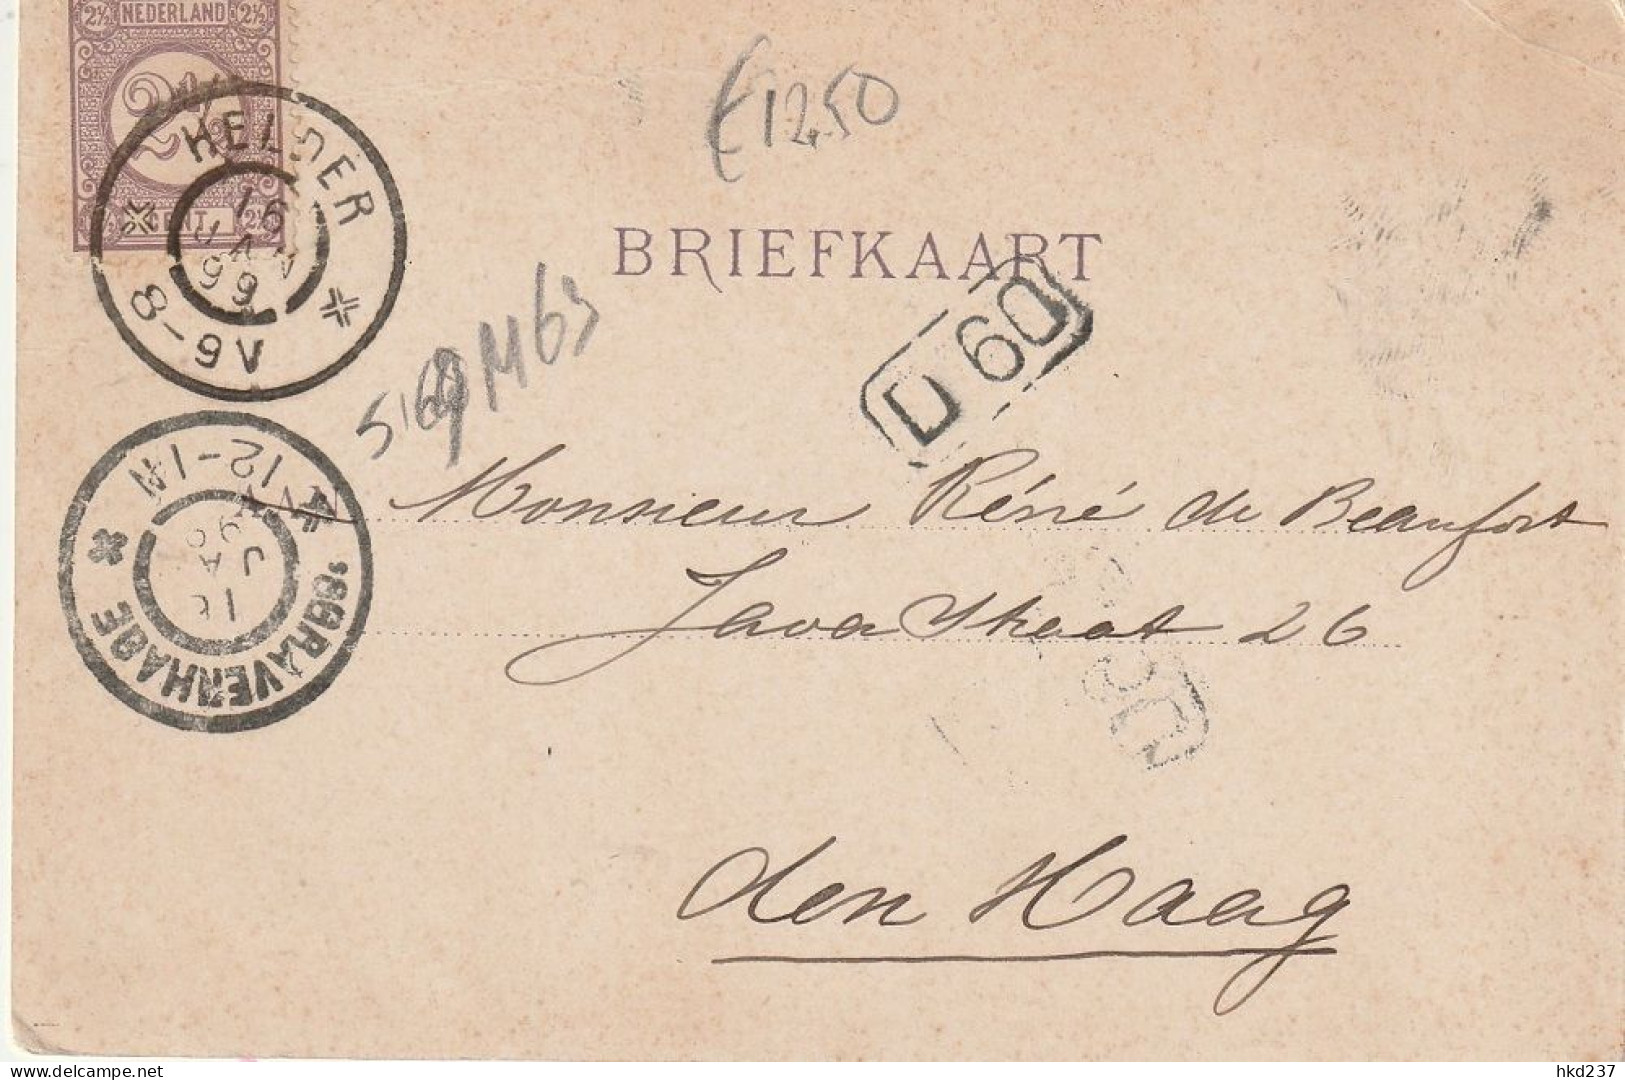 2½ NEDERLAND 2½
2½
CENT 2½
HELDER
16
99
8-9V
€1250
BRIEFKAART
D 60
's GRAVENHAGE
12-1N
JA
Monsieur Réné de Beaufort
Java Straat 26
den Haag
delcampe.net
hkd237